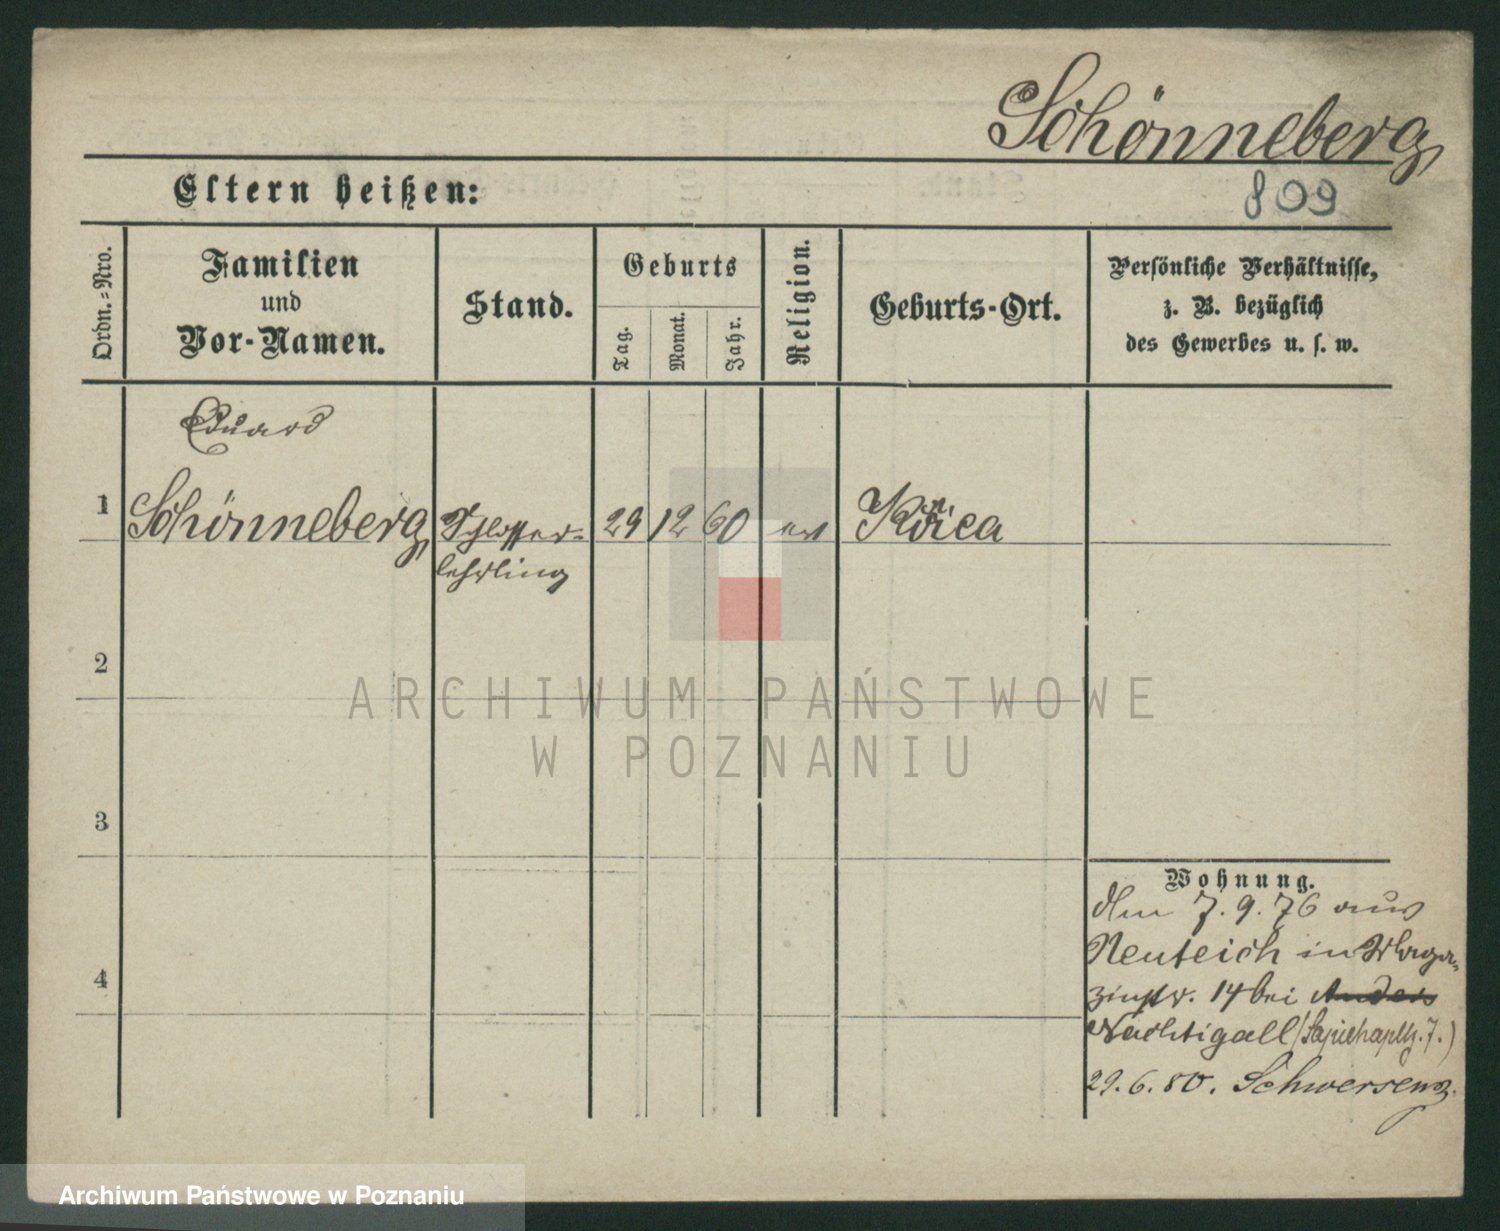 Schönneberg
Eltern heißen:
809
Ordn.=Nro.
Familien
und
Vor-Namen.
Stand.
Geburts
Tag.
Monat.
Jahr.
Religion.
Geburts-Ort.
Persönliche Verhältnisse,
z. B. bezüglich
des Gewerbes u. s. w.
Eduard
1 Schönneberg Schlosser= 29 12 60 ev
lehrling
2
ARCHIWUM PAŃSTWOWE
W POZNANIU
3
Wohnung.
den 7.9.76 aus
Neuteich in Maga=
4
zinstr. 14 bei
Nachtigall (Sapiehapltz. 7.)
29.6.80. Schwersenz.
Archiwum Państwowe w Poznaniu